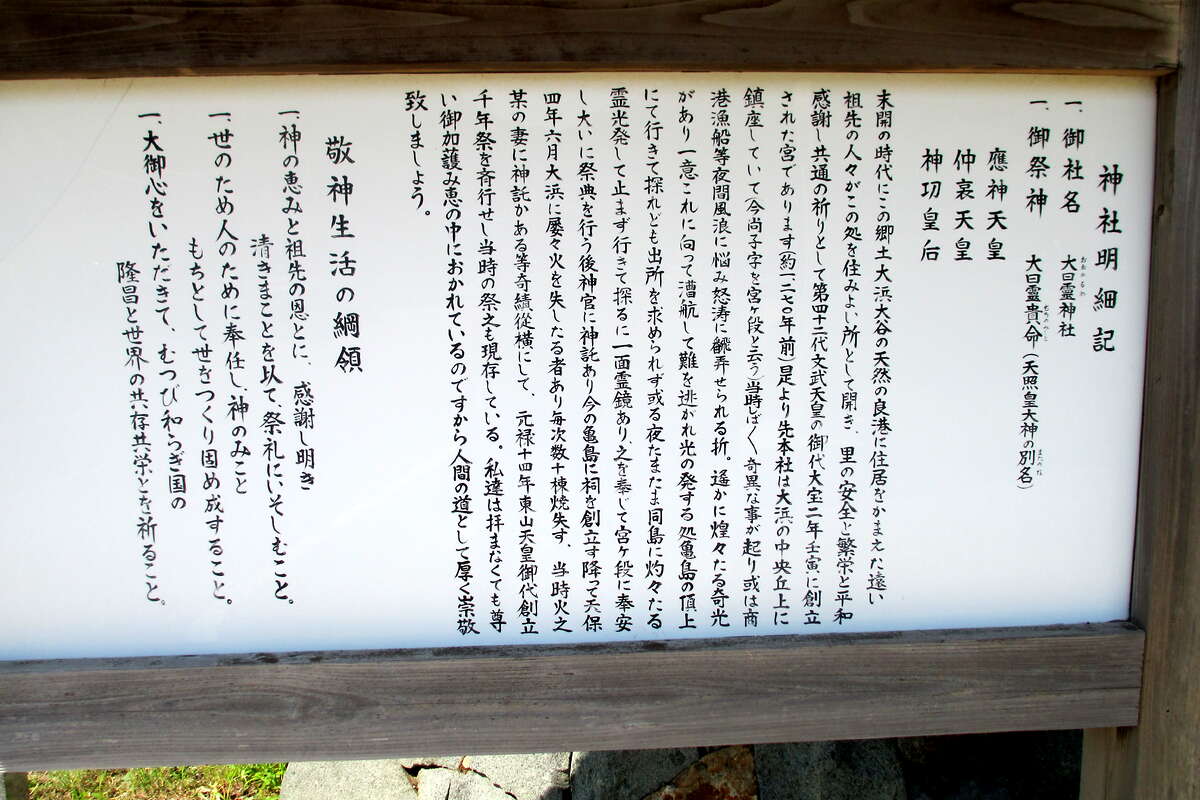 神社明細記
一、御社名　大日霊神社
一、御祭神　大日霊貴命（天照皇大神の別名）
應神天皇
仲哀天皇
神功皇后
末開の時代にこの郷土大浜大谷の天然の良港に住居をかまえた遠い
祖先の人々がこの処を住みよい所として開き、里の安全と繁栄と平和
感謝し共通の祈りとして第四十二代文武天皇の御代大宝二年壬寅に創立
された宮であります（約一、二七〇年前）是より先本社は大浜の中央丘上に
鎮座していて（今尚子字を宮ヶ段と云う）当時しばしば奇異な事が起り或は商
港漁船等夜間風浪に悩み怒涛に飜弄せられる折。遙かに煌々たる奇光
があり一意これに向って漕航して難を逃がれ光の発する処亀島の頂上
にて行きて探れども出所を求められず或る夜たまたま同島に灼々たる
霊光発して止まず行きて探るに一面霊鏡あり、之を奉じて宮ヶ段に奉安
し大いに祭典を行う後神官に神託あり今の亀島に祠を創立す降って天保
四年六月大浜に屡々火を失したる者あり毎次数十棟焼失す、当時火之
某の妻に神託かある等奇績從横にして、元禄十四年東山天皇御代創立
千年祭を斉行せし当時の祭文も現存している。私達は拝まなくても尊
い御加護み恵の中におかれているのですから人間の道として厚く崇敬
致しましょう。
敬神生活の綱領
一、神の恵みと祖先の恩とに、感謝し明き
清きまことを以て、祭礼にいそしむこと。
一、世のため人のために奉仕し、神のみこと
もちとして世をつくり固め成すること。
一、大御心をいただきて、むつび和らぎ国の
隆昌と世界の共存共栄とを祈ること。